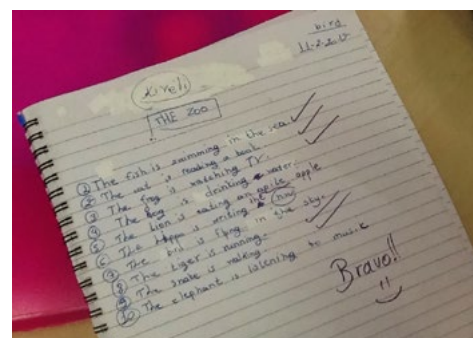 bird
THE ZOO
① The fish is swimming in the sea.
② The cat is reading a book.
③ The frog is watching TV.
④ The dog is drinking water.
⑤ The lion is eating an apple
⑥ The hippo is writing
⑦ The bird is flying in the sky.
⑧ The tiger is running.
⑨ The snake is
⑩ The elephant is listening to music
Bravo!!